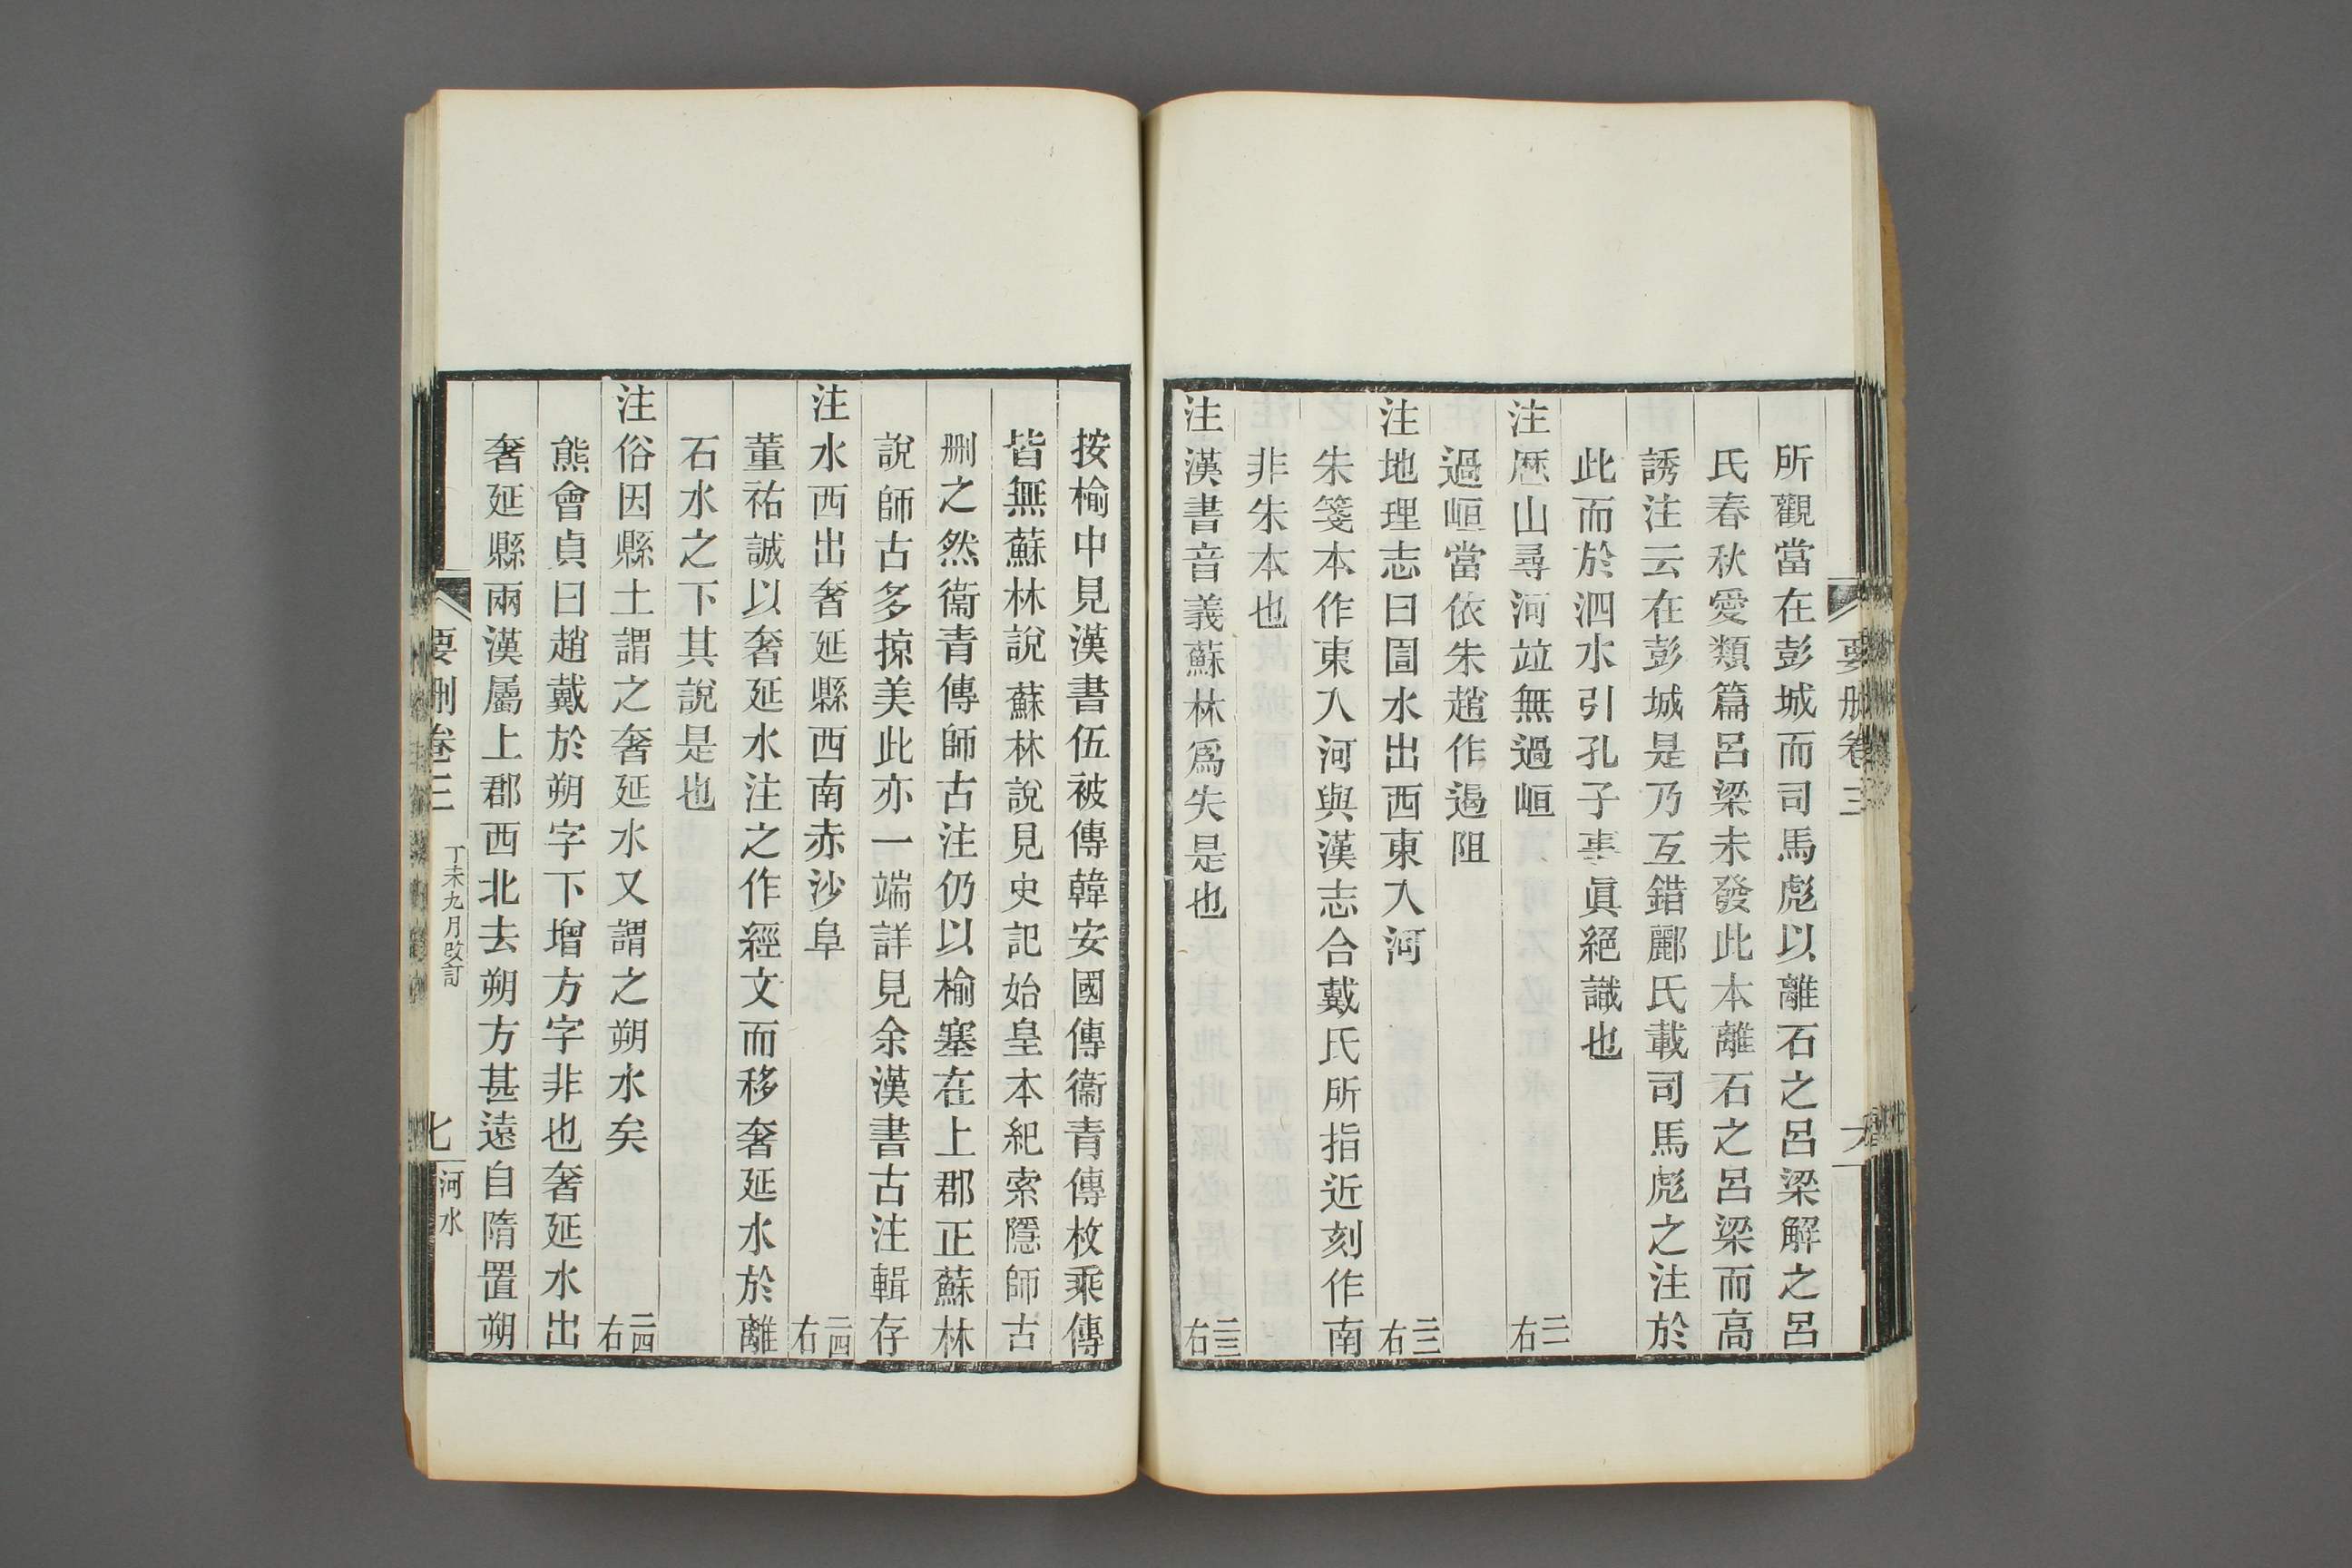 所觀當在彭城而司馬彪以離石之呂梁解之呂
氏春秋愛類篇呂梁未發此本離石之呂梁而高
誘注云在彭城是乃互錯酈氏載司馬彪之注於
此而於泗水引孔子事眞絕識也
注歷山尋河竝無過峘 二一右
過峘當依朱趙作過阻
注地理志曰圁水出西東入河 二三右
朱箋本作東入河與漢志合戴氏所指近刻作南
非朱本也
注漢書音義蘇林爲失是也 二三右
按榆中見漢書伍被傳韓安國傳衞青傳枚乘傳
皆無蘇林說蘇林說見史記始皇本紀索隱師古
刪之然衞青傳師古注仍以榆塞在上郡正蘇林
說師古多掠美此亦一端詳見余漢書古注輯存
注水西出奢延縣西南赤沙阜 二四右
董祐誠以奢延水注之作經文而移奢延水於離
石水之下其說是也
注俗因縣土謂之奢延水又謂之朔水矣 二四右
熊會貞曰趙戴於朔字下增方字非也奢延水出
奢延縣兩漢屬上郡西北去朔方甚遠自隋置朔
要刪卷三 丁未九月改訂 七 河水